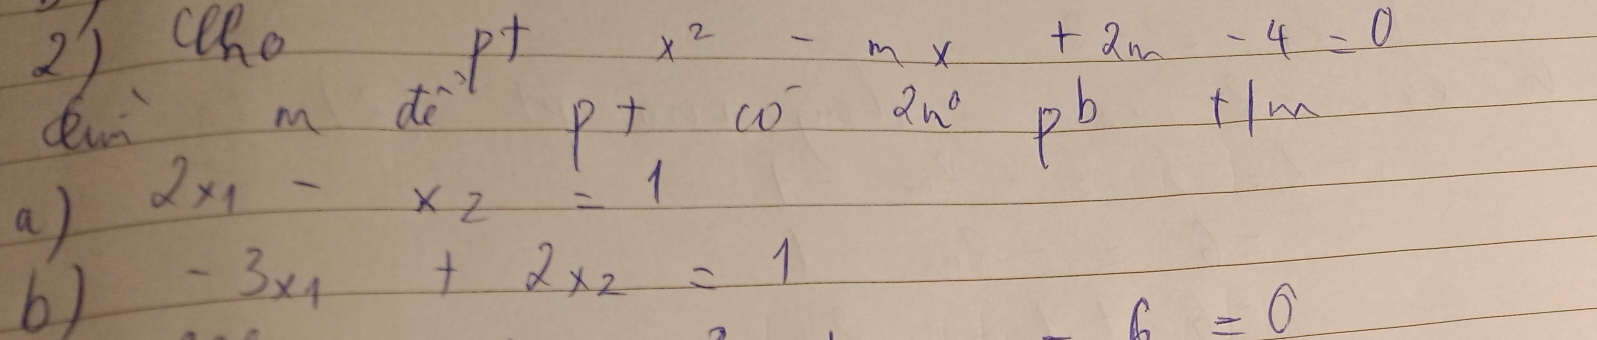 2) Cho pt x² - mx + 2m - 4 = 0
tìm m để pt có 2n⁰ pb t/m
a) 2x₁ - x₂ = 1
b) - 3x₁ + 2x₂ = 1
- 6 = 0